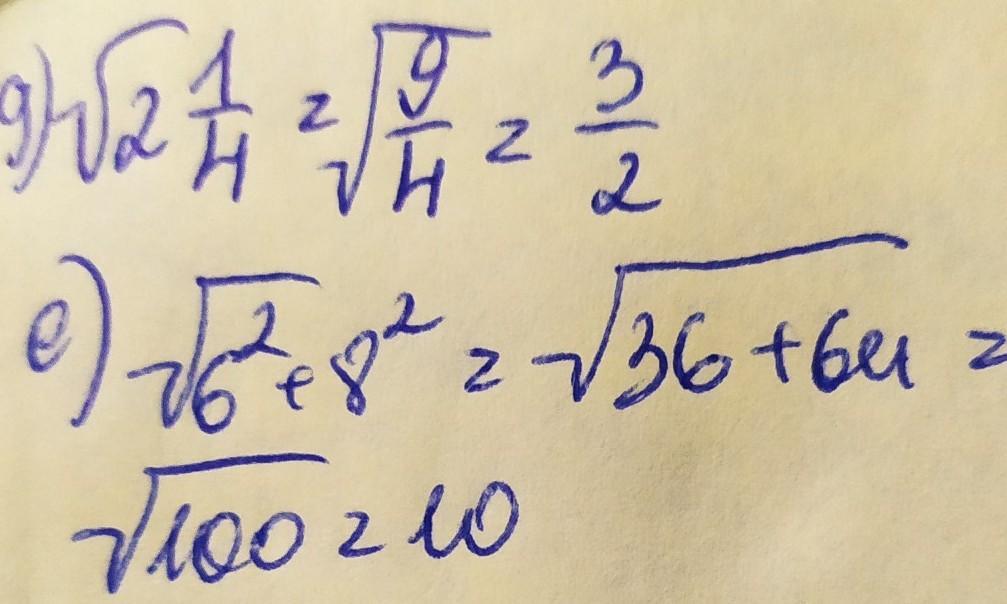 g) √2 1/4 = √9/4 = 3/2
e) √6² + 8² = √36 + 64 =
√100 = 10